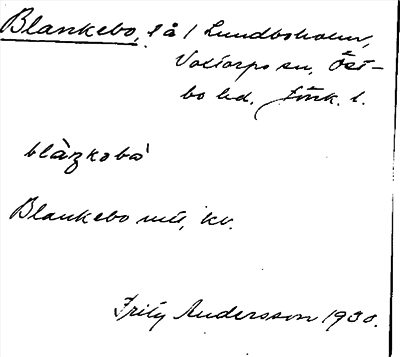 Blankebo, l å 1 Lundboholm,
Voxtorps sn, Öst-
bo hd, Jönk. l.
blàŋkobó
Blankebo mú, kv.
Fritz Andersson 1930.